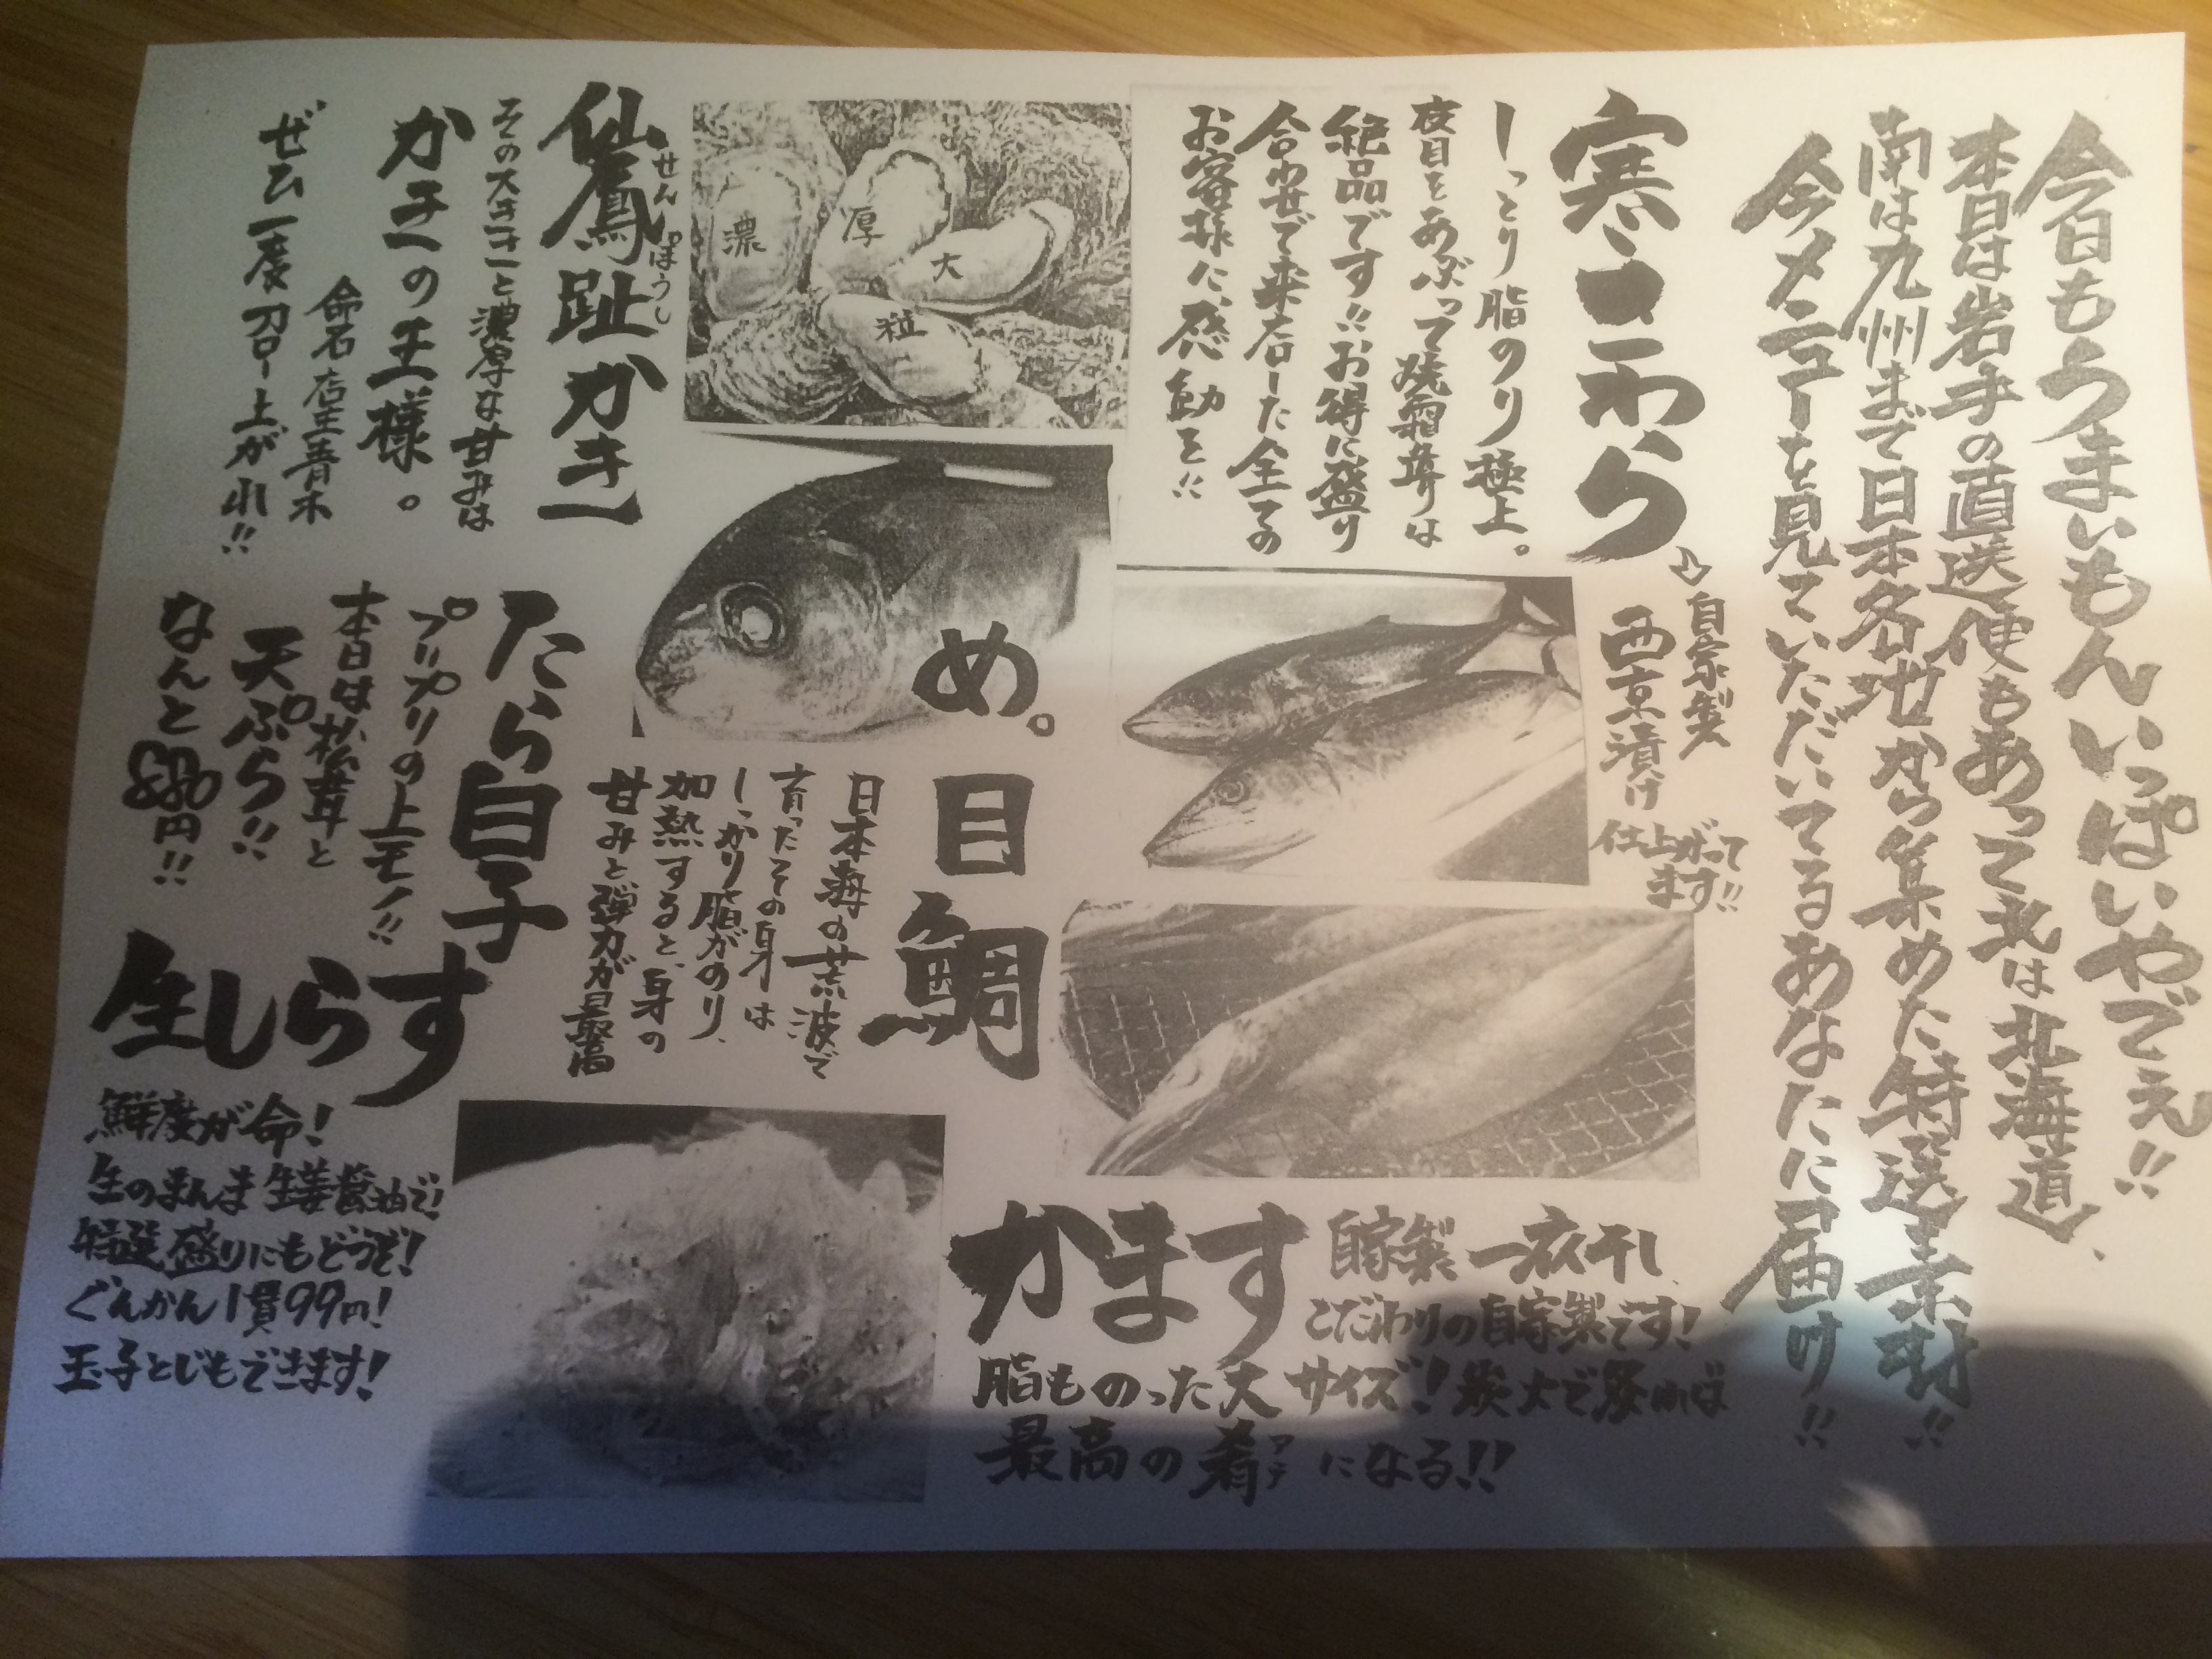 今日もうまいもんいっぱいやでぇ!!
本日は岩手の直送便もあって北は北海道、
南は九州まで日本各地から集めた特選素材!!
今メニューを見ていただいてるあなたに届け!!
寒さわら
しっとり脂のり極上。
皮目をあぶって焼霜造りは
絶品です!!お得に盛り
合わせで来店した全ての
お客様に感動を!!
⇨自家製
西京漬け
仕上がって
ます!!
濃
厚
大
粒
せんぽうし
仙鳳趾かき
その大きさと濃厚な甘みは
かきの王様。
命名 店主青木
ぜひ一度召し上がれ!!
め。
目鯛
日本海の荒波で
育ったその身は
しっかり脂がのり、
加熱すると、身の
甘みと弾力が最高
たら白子
プリプリの上モノ!!
本日は松茸と
天ぷら!!
なんと880円!!
生しらす
鮮度が命!
生のまんま生姜醤油で!
特選盛りにもどうぞ!
ぐんかん1貫99円!
玉子とじもできます!
かます
自家製一夜干し
こだわりの自家製です!
脂ものった大サイズ!炭火で炙れば
最高の肴アテになる!!